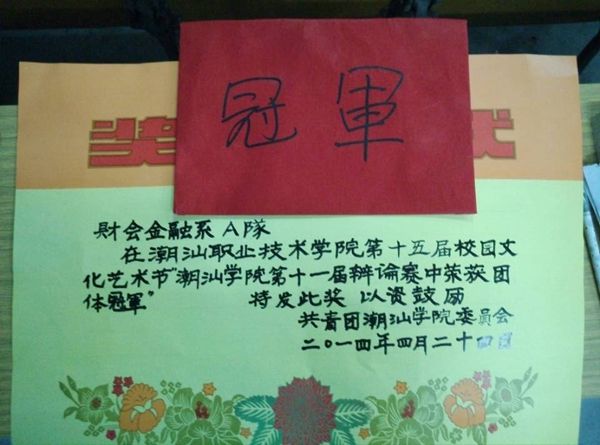 冠軍
奖状
财会金融系A隊
在潮汕职业技术学院第十五届校园文
化艺术节"潮汕学院第十一届辩论赛中荣获团
体冠軍"  特发此奖 以资鼓励
共青团潮汕学院委员会
二〇一四年四月二十四日